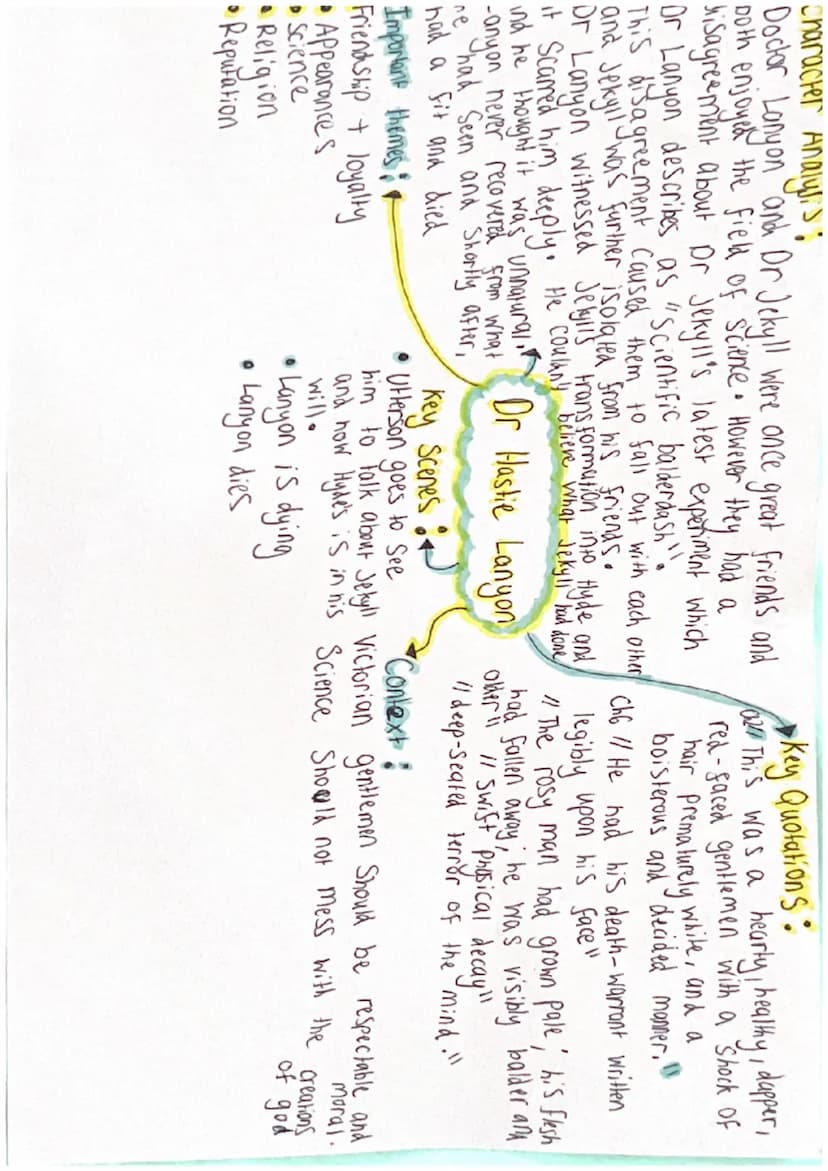 Character Analysis:
Doctor Lanyon and Dr Jekyll were once great friends and
both enjoyed the field of science. However they had a
disagreement about Dr Jekyll's latest experiment which
Dr Lanyon describes as "scientific balderdash".
This disagreement caused them to fall out with each other
and Jekyll was further isolated from his friends.
Dr Lanyon witnessed Jekylls transformation into Hyde and
it scarred him deeply. He couldn't believe what Jekyll had done
and he thought it was unnatural.
Lanyon never recovered from what
he had seen and shortly after,
had a fit and died
Important themes:
Friendship + loyalty
• Appearances
• Science
• Religion
• Reputation
Dr Hastie Lanyon
Key Scenes:
• Utterson goes to see
him to talk about Jekyll
and how Hyde's is in his
will.
• Lanyon is dying
• Lanyon dies
Key Quotations:
Ch2 "This was a hearty, healthy, dapper,
red-faced gentlemen with a shock of
hair prematurely white, and a
boisterous and decided manner."
Ch6 "He had his death-warrant written
legibly upon his face"
"The rosy man had grown pale; his flesh
had fallen away; he was visibly balder and
older" "swift physical decay"
"deep-seated terror of the mind."
Context:
Victorian gentlemen should be respectable and
moral.
Science should not mess with the creations
of god